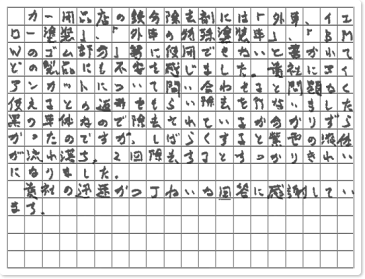 カー用品店の鉄分除去剤には「外車、イエ
ロー塗装」、「外車の特殊塗装車」、「BM
Wのゴム部分」等に使用できないと書かれて
どの製品にも不安を感じました。貴社にアイ
アンカットについて問い合わせると問題なく
使えるとの返事をもらい除去を行ないました
黒の車体なので除去されているか分かりずら
かったのですが、しばらくすると紫色の液体
が流れ落ち、2回除去するとすっかりきれい
になりました。
貴社の迅速かつていねいな回答に感謝してい
ます。